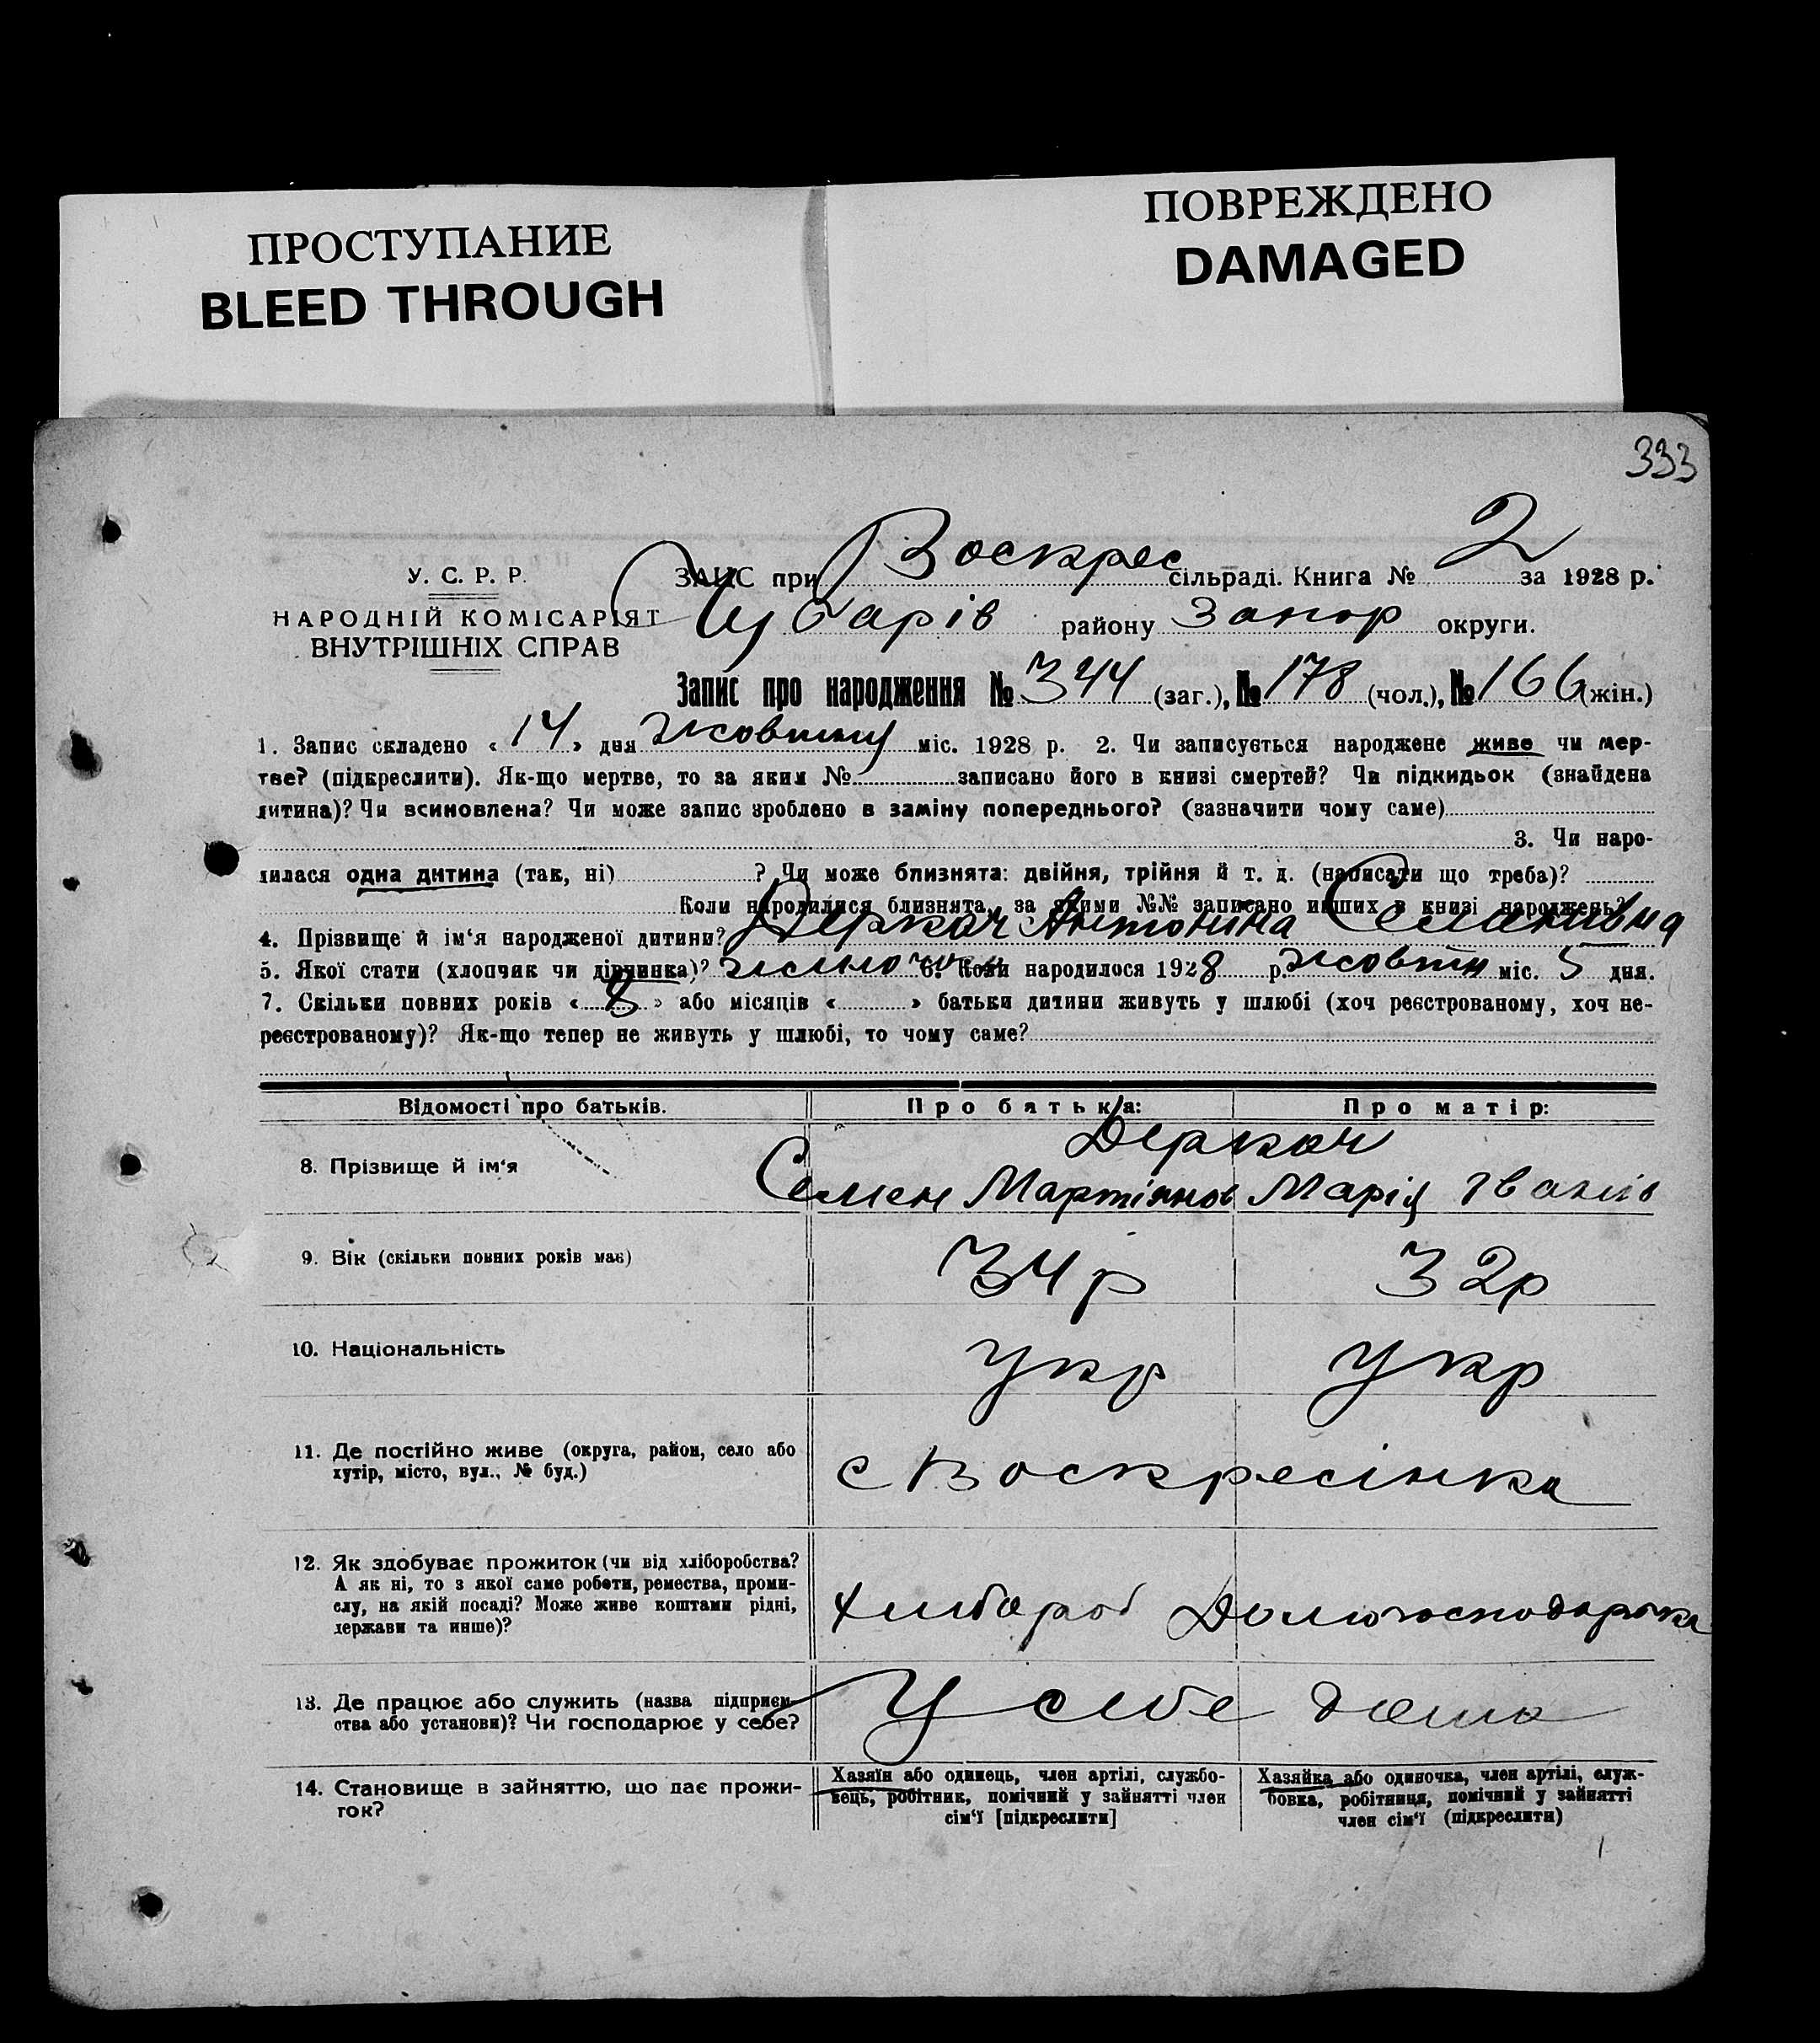 ПРОСТУПАНИЕ
BLEED THROUGH
ПОВРЕЖДЕНО
DAMAGED
333
У. С. Р. Р.
НАРОДНІЙ КОМІСАРІЯТ
ВНУТРІШНІХ СПРАВ
ЗАГС при Воскрес сільраді. Книга № 2 за 1928 р.
Цубарів району Запор округи.
Запис про народження № 344 (заг.), № 178 (чол.), № 166 (жін.)
1. Запис складено « 14 » дня жовтню міс. 1928 р. 2. Чи записується народжене живе чи мер-
тве? (підкреслити). Як-що мертве, то за яким № записано його в книзі смертей? Чи підкидьок (знайдена
дитина)? Чи всиновлена? Чи може запис зроблено в заміну попереднього? (зазначити чому саме)
3. Чи наро-
дилася одна дитина (так, ні) ? Чи може близнята: двійня, трійня й т. д. (написати що треба)?
Коли народилися близнята, за якими №№ записано инших в книзі народжень?
4. Прізвище й ім'я народженої дитини? Деркач Антонина Семенівна
5. Якої стати (хлопчик чи дівчинка)? жіночої 6. Коли народилося 1928 р. жовтн міс. 5 дня.
7. Скільки повних років « 8 » або місяців « » батьки дитини живуть у шлюбі (хоч реєстрованому, хоч не-
реєстрованому)? Як-що тепер не живуть у шлюбі, то чому саме?
Відомості про батьків. Про батька: Про матір:
Деркач
8. Прізвище й ім'я Семен Мартіянов Марія Іванів
9. Вік (скільки повних років має) 34 р 32 р
10. Національність укр укр
11. Де постійно живе (округа, район, село або
хутір, місто, вул., № буд.) с Воскресінка
12. Як здобуває прожиток (чи від хліборобства?
А як ні, то з якої саме роботи, ремества, проми-
слу, на якій посаді? Може живе коштами рідні,
держави та инше)? хлібороб Домогосподарка
13. Де працює або служить (назва підприєм-
ства або установи)? Чи господарює у себе? У себе дома
14. Становище в зайняттю, що дає прожи-
ток?
Хазяїн або одинець, член артілі, службо-
вець, робітник, помічний у зайнятті член
сім'ї [підкреслити]
Хазяйка або одиночка, член артілі, служ-
бовка, робітниця, помічний у зайнятті
член сім'ї (підкреслити)